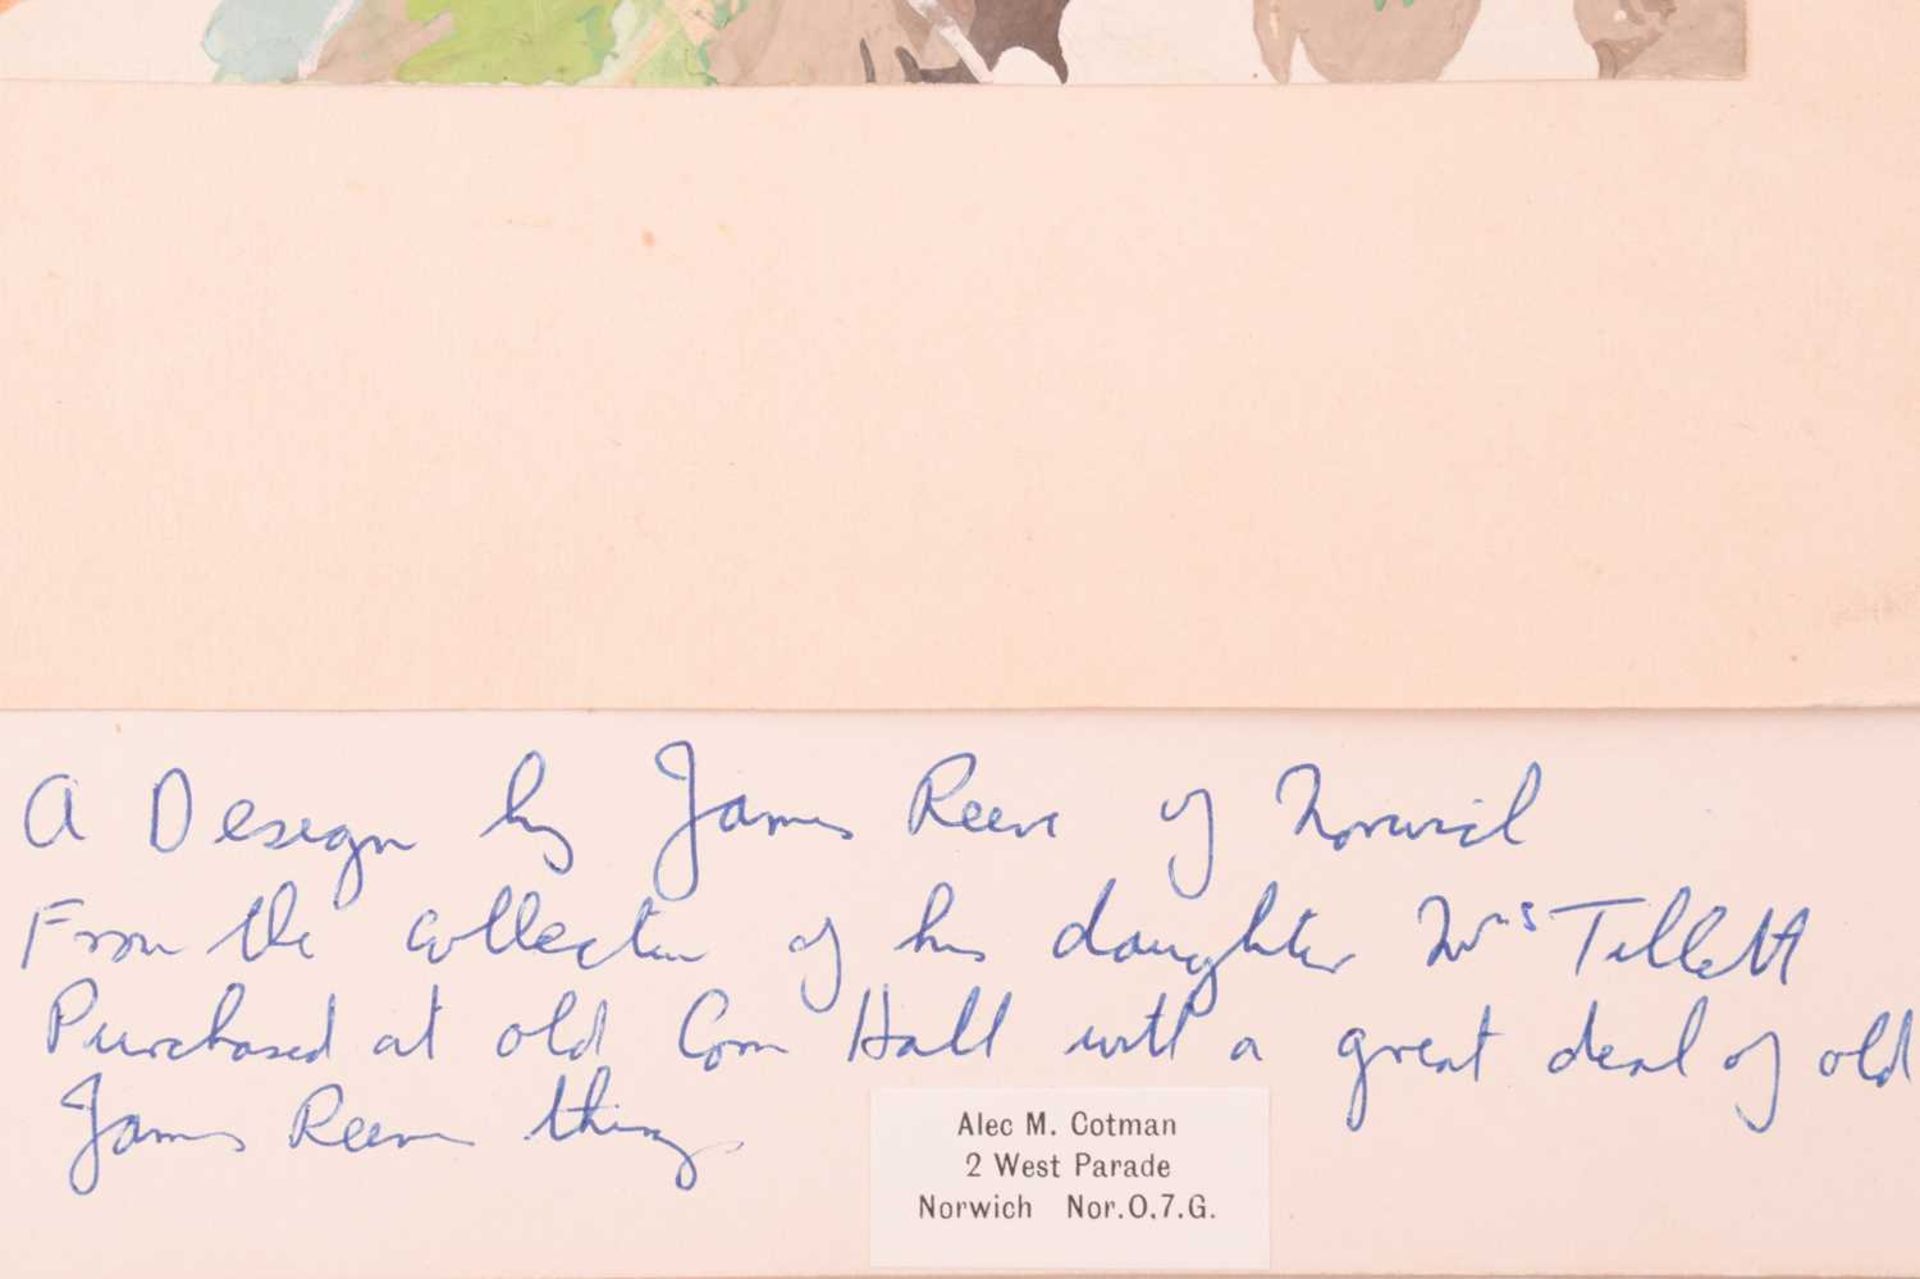 A Design by James Reeve of Norwich
From the collection of his daughter Mrs Tillett
Purchased at old Corn Hall with a great deal of old
James Reeve things
Alec M. Cotman
2 West Parade
Norwich Nor.O.7.G.